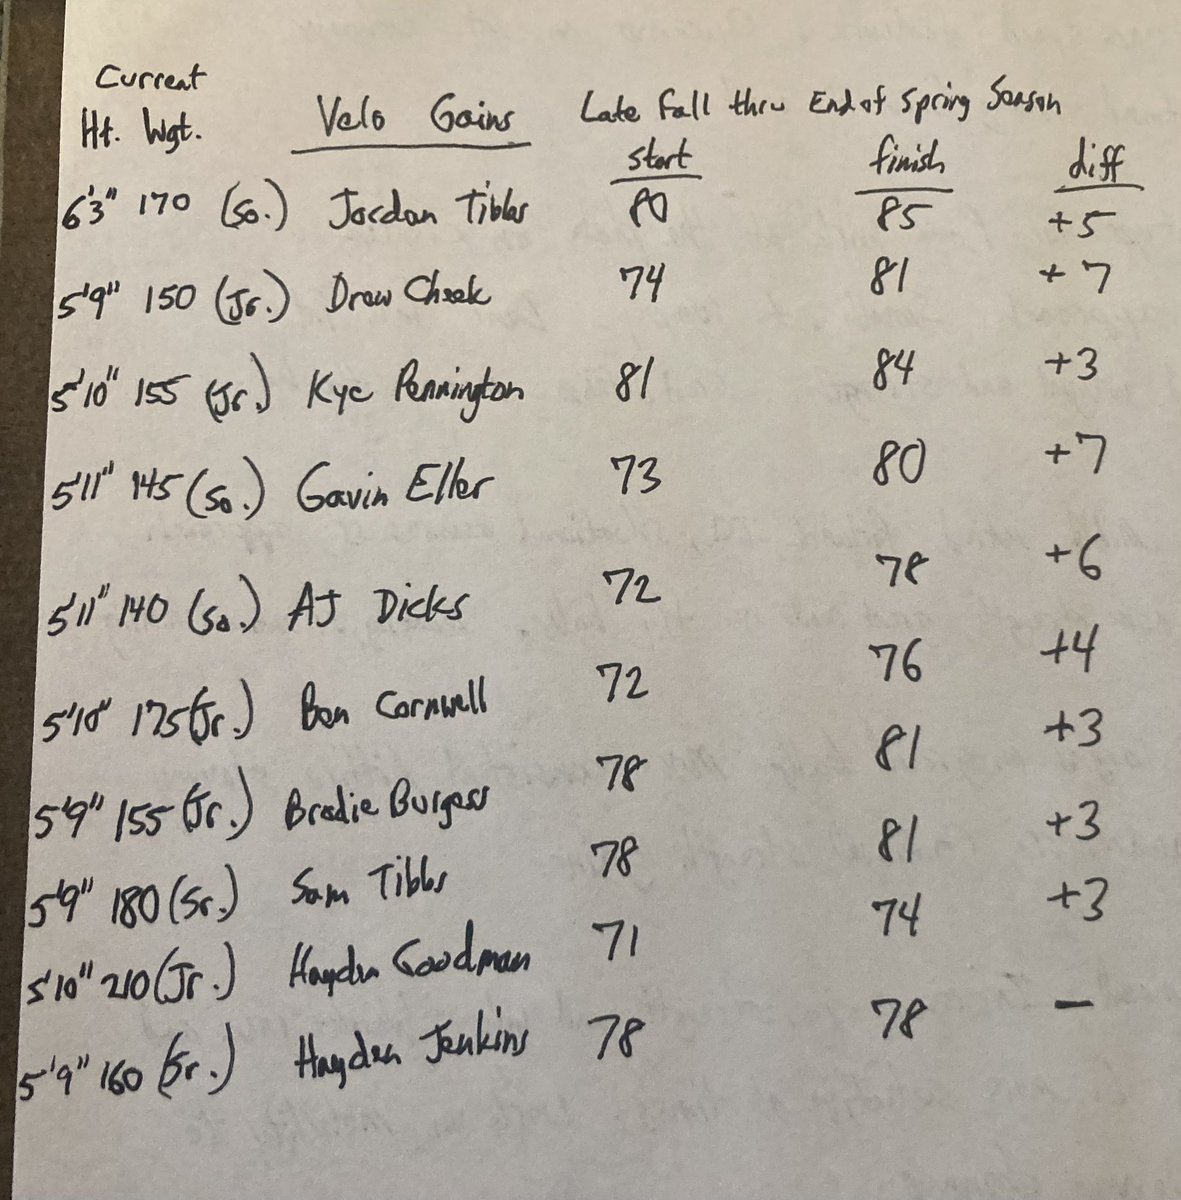 Current
Ht. Wgt. Velo Gains Late Fall thru End of Spring Season
start finish diff
6'3" 170 (So.) Jordan Tibbs 80 85 +5
5'9" 150 (Jr.) Drew Cheek 74 81 +7
5'10" 155 (Jr.) Kye Pennington 81 84 +3
5'11" 145 (So.) Gavin Eller 73 80 +7
5'11" 140 (So.) AJ Dicks 72 78 +6
5'10" 175 (Jr.) Ben Cornwell 72 76 +4
5'9" 155 (Jr.) Brodie Burgess 78 81 +3
5'9" 180 (Sr.) Sam Tibbs 78 81 +3
5'10" 210 (Jr.) Hayden Goodman 71 74 +3
5'9" 160 (Sr.) Hayden Jenkins 78 78 —